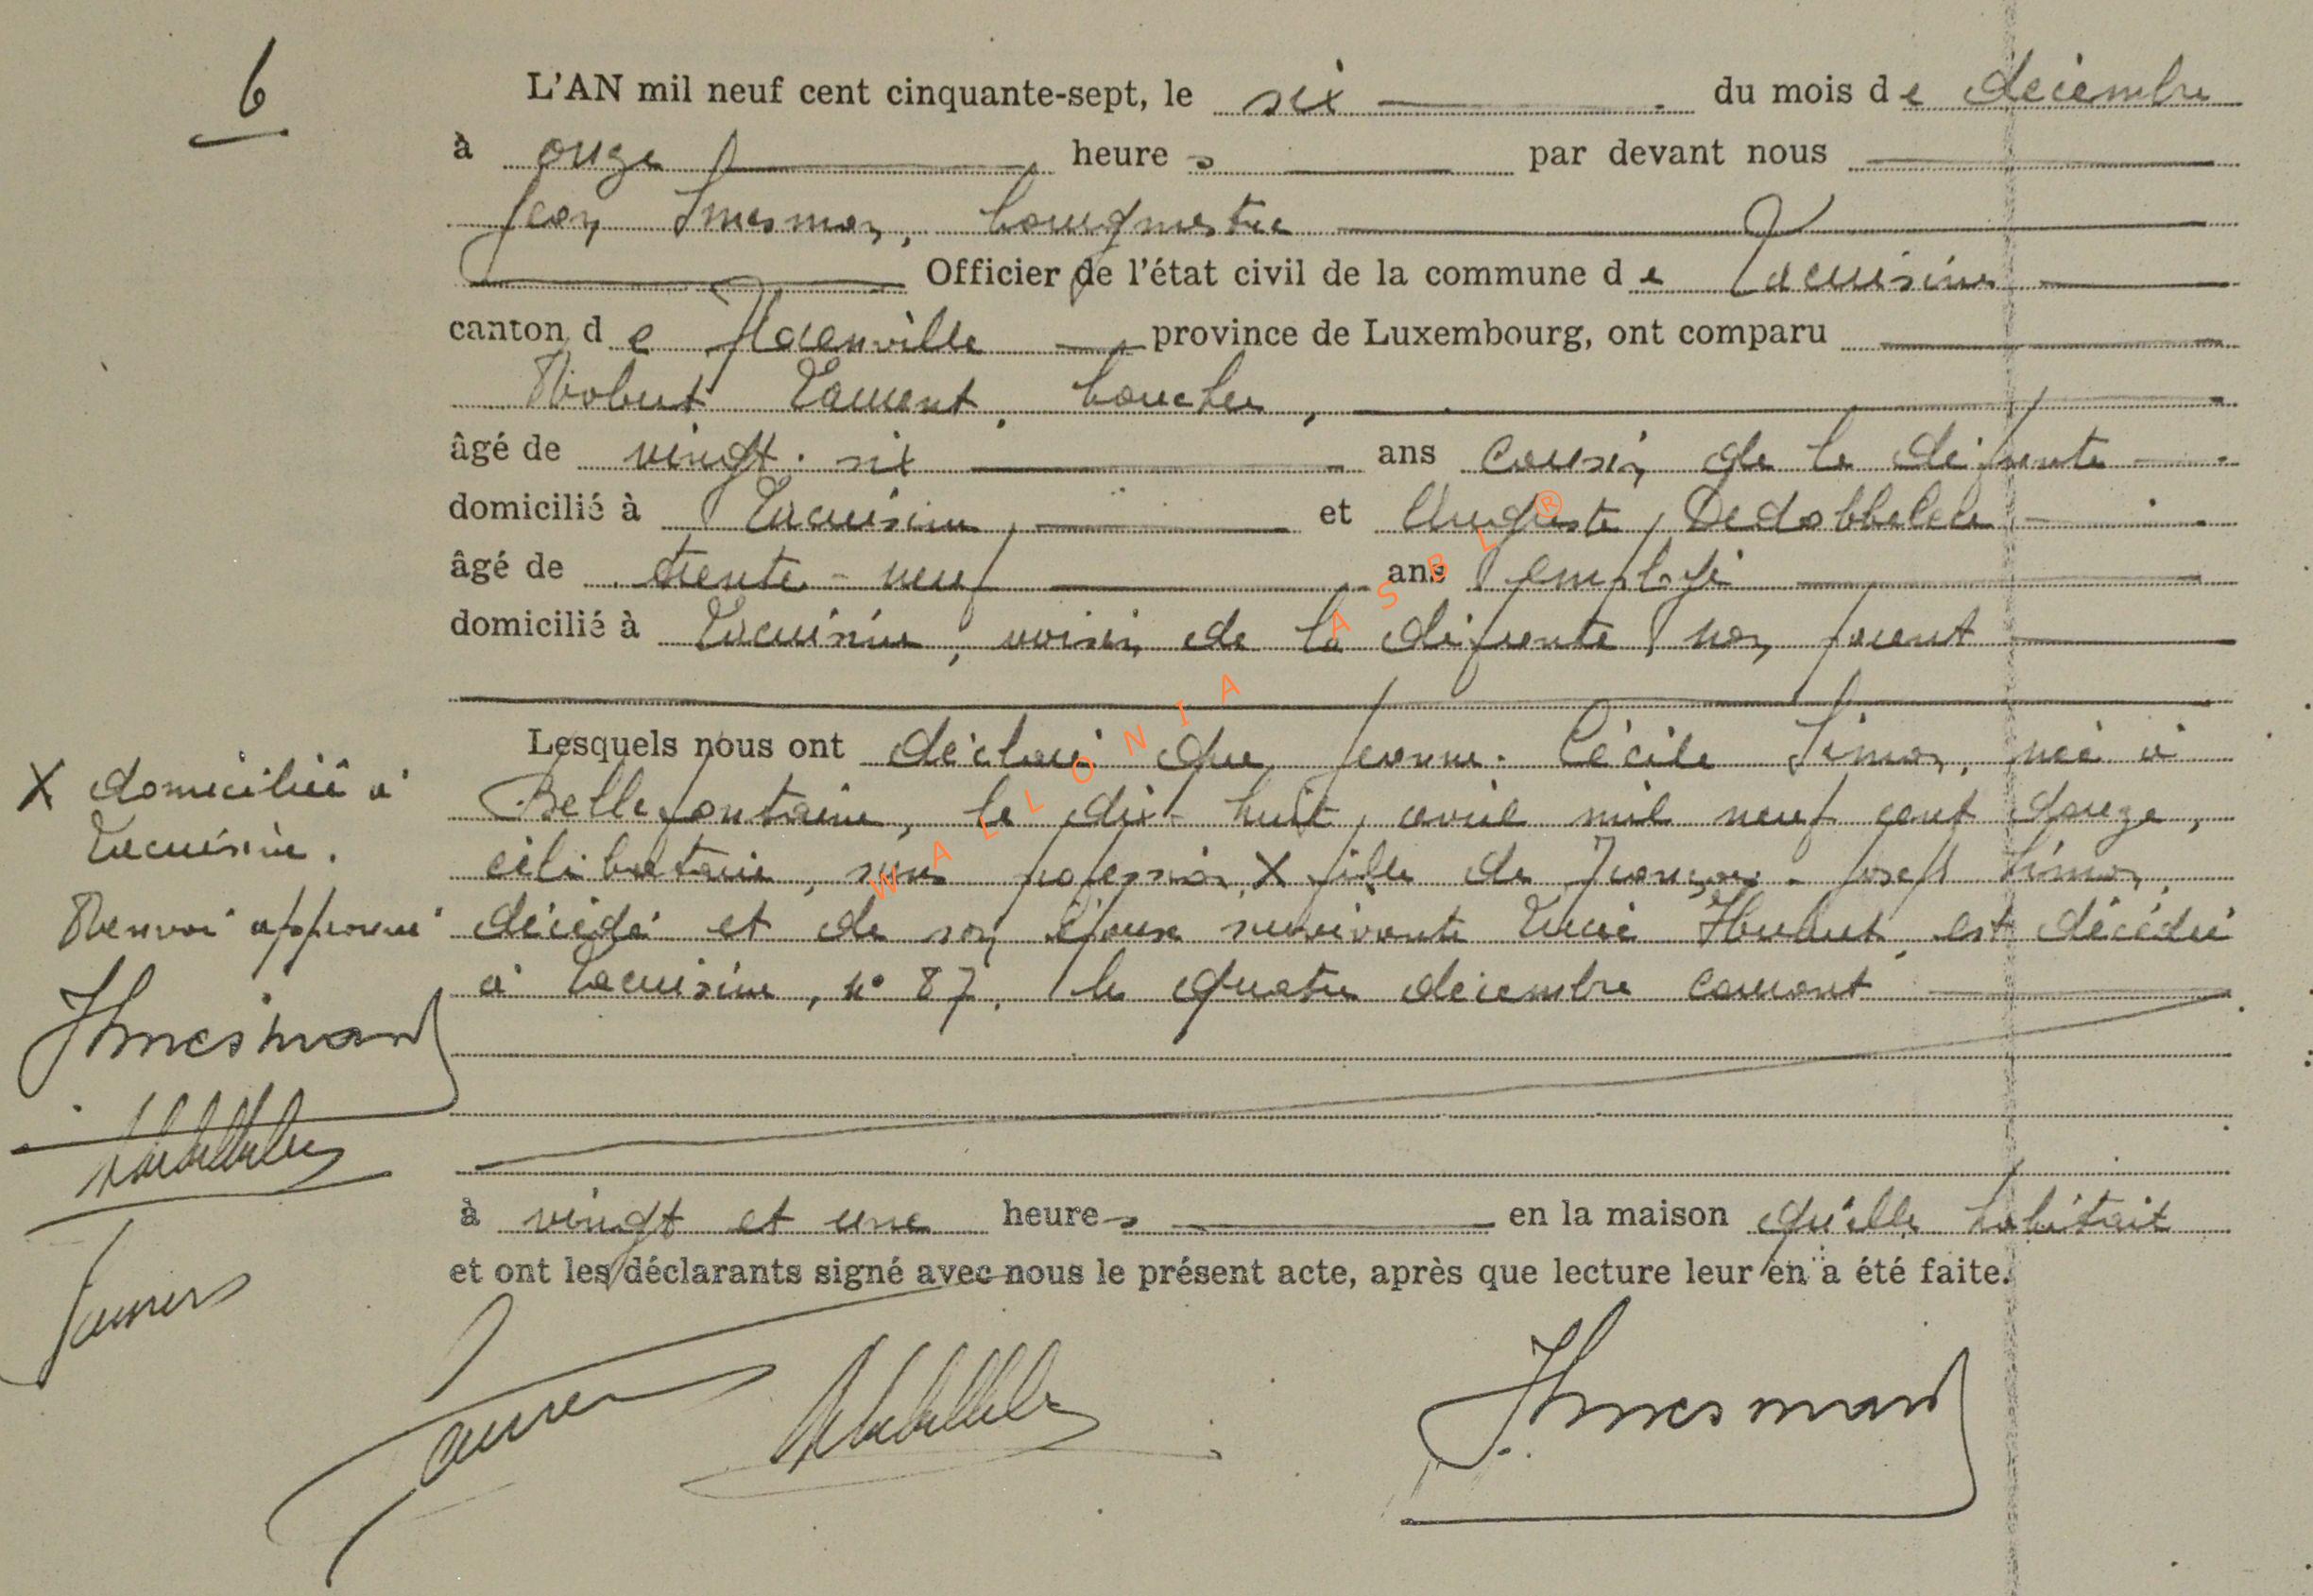 6
L'AN mil neuf cent cinquante-sept, le six du mois de décembre
à onze heures par devant nous
Jean Smesman, bourgmestre
Officier de l'état civil de la commune de Lacuisine
canton de Florenville province de Luxembourg, ont comparu
Robert Laurent, boucher,
âgé de vingt-six ans cousin de la défunte
domicilié à Lacuisine, et Auguste Dedobbeleer
âgé de trente-neuf ans employé
domicilié à Lacuisine, voisin de la défunte non parent
Lesquels nous ont déclaré que Jeanne-Cécile Simon, née à
Bellefontaine, le dix-huit avril mil neuf cent douze,
célibataire, sans profession, X fille de François-Joseph Simon,
décédé et de son épouse survivante Lucie Hubert, est décédée
à Lacuisine, n° 87, le quatre décembre courant
à vingt et une heures en la maison qu'elle habitait
et ont les déclarants signé avec nous le présent acte, après que lecture leur en a été faite.
X domiciliée à
Lacuisine.
Renvoi approuvé
WALLONIA ASBL ®